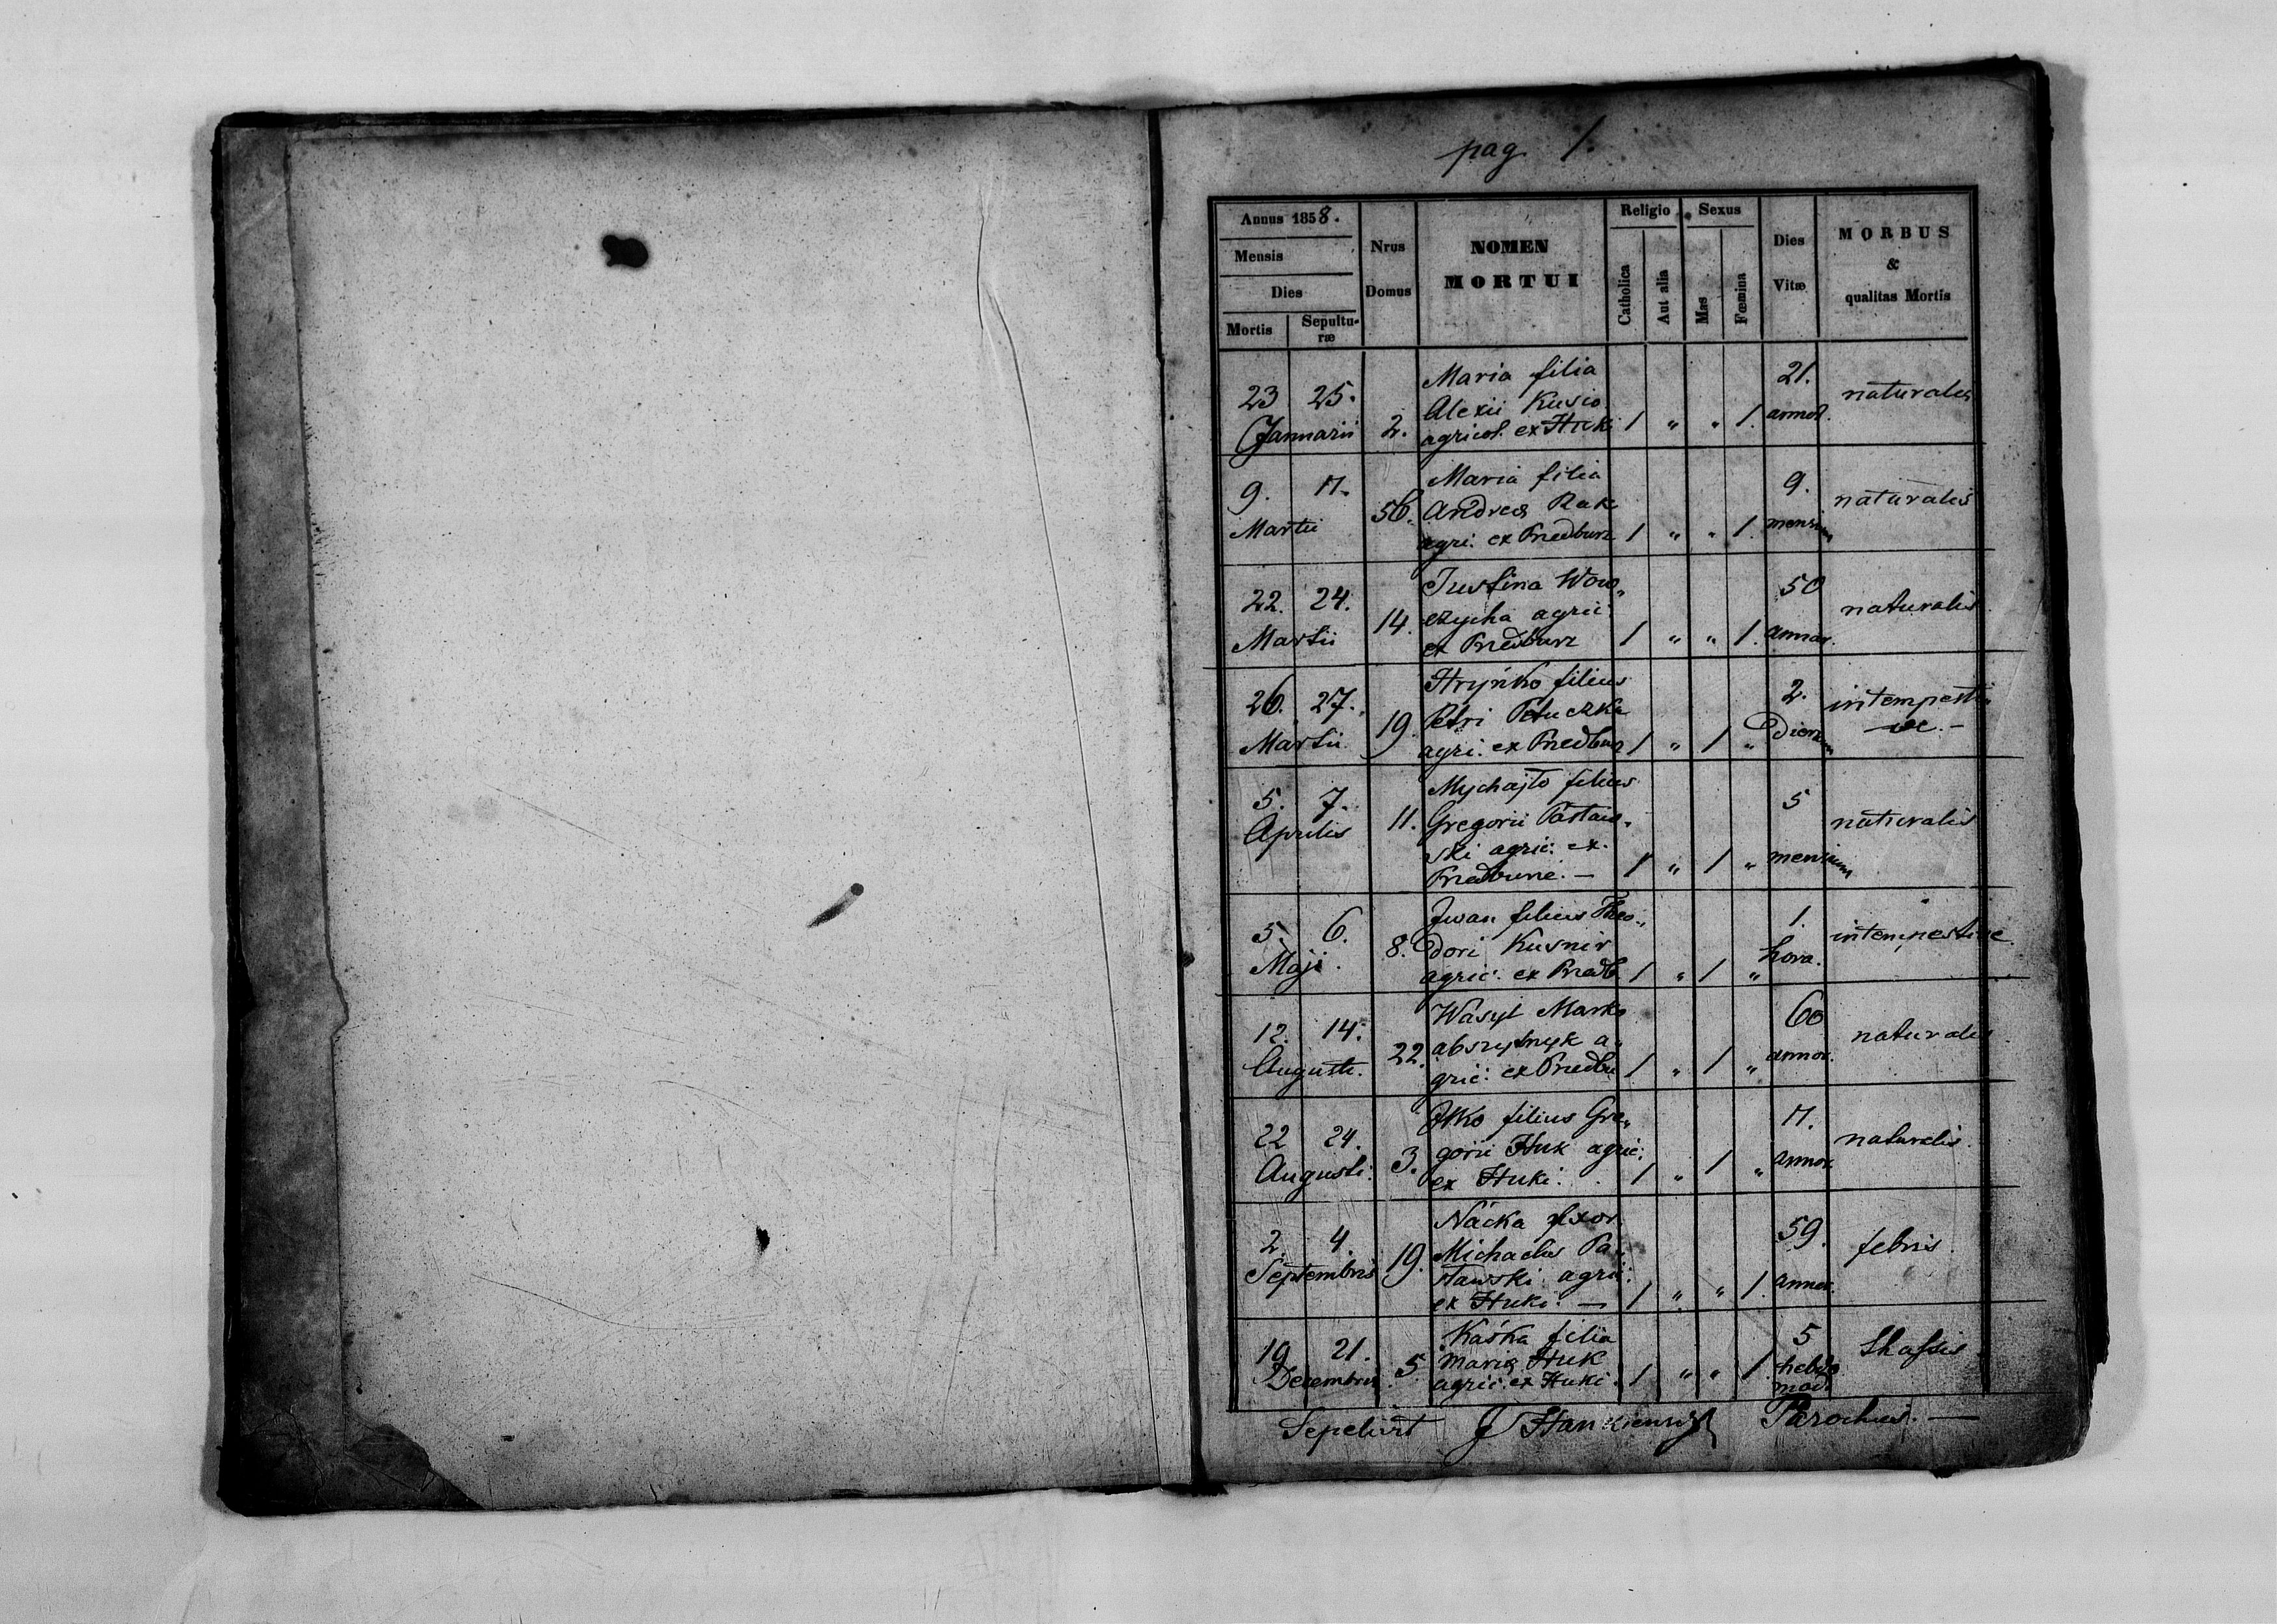 pag 1.
Annus 1858.
Mensis
Dies
Mortis
Sepultu-
ræ
Nrus
Domus
NOMEN
MORTUI
Religio
Catholica
Aut alia
Sexus
Mas
Fœmina
Dies
Vitæ
MORBUS
&
qualitas Mortis
23 25. Maria filia 21. naturalis
Januarii 2. Alexii Kusio annor.
agricol. ex Huki 1 " " 1.
9. 11. Maria filia 9. naturalis
Martii 56. Andreæ Rak
agri: ex Priedburz 1 " " 1. mensium
22. 24. Justina Wow„ 50 naturalis
Martii 14. czycha agric:
ex Priedburz 1 " " 1. annor.
26. 27. Hryńko filius 2. intempesti
Martii 19. Petri Petuczka Dierum ve. —
agri. ex Priedburz 1 " 1 "
5. 7. Mychajło filius 5
Aprilis 11. Gregorii naturalis
ski agric: ex
1 " 1 " mensium
5. 6. Iwan filius Theo„ 1. intempestive.
Maji 8. dori Kusnir hora.
agric: ex Priedb 1 " 1 "
12. 14. Wasyl Marko 60 naturalis
Augusti. 22. abszytnyk a„ annor.
gric: ex Priedbu 1 " 1 "
22 24. Ilko filius Gre„ 11. naturalis.
Augusti. 3. gorii Huk agric: annor.
ex Huki. 1 " 1 "
2. 4. Nacka uxor 59. febris.
Septembris 19. Michaelis Pa„
stawski agric:
ex Huki. — 1 " " 1. annor.
19 21. Kaśka filia 5
Decembris 5. Mariæ Huk hebdo
agric. ex Huki. 1 " " 1. mad
Sepelivit J Hankiewicz Parochus. —